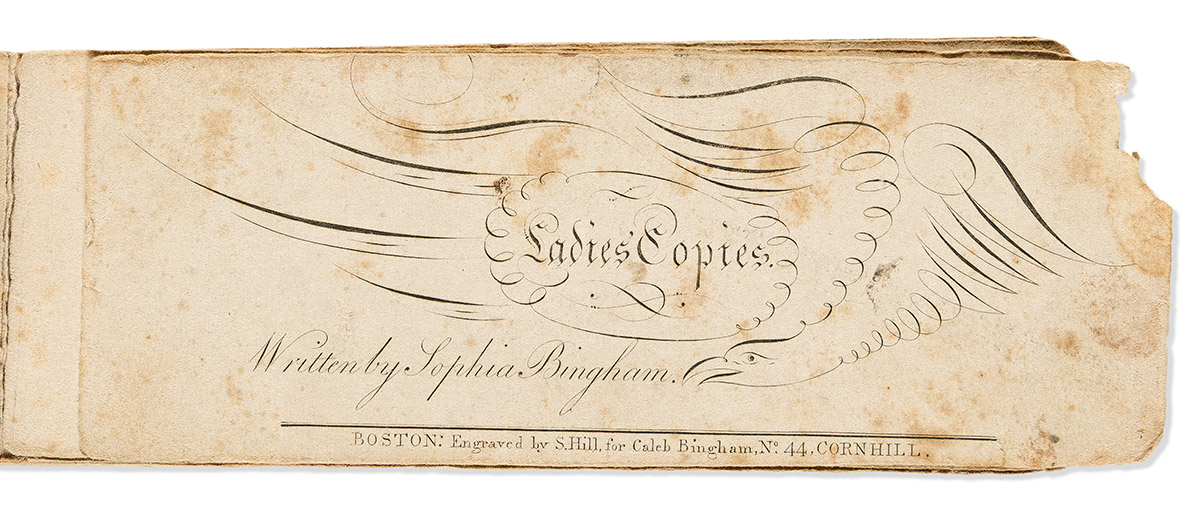 Ladies' Copies.
Written by Sophia Bingham.
BOSTON: Engraved by S. Hill, for Caleb Bingham, No. 44, CORNHILL.